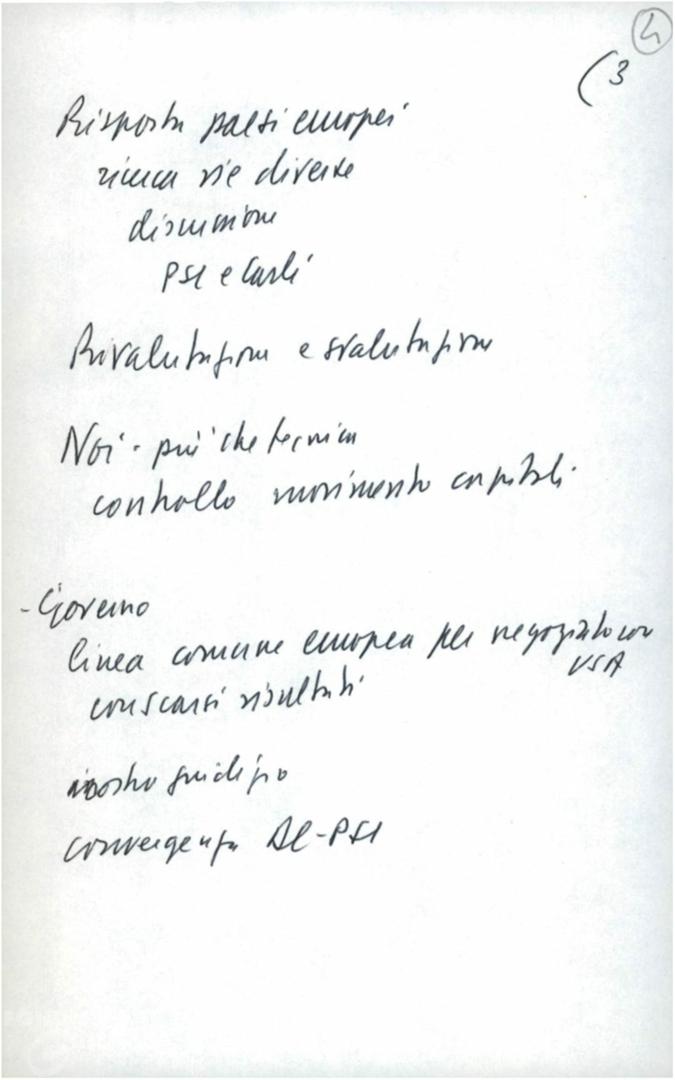 4
(3
Risposta paesi europei
ricerca vie diverse
discussione
PSI e Carli
Rivalutazione e svalutazione
Noi - più che tecnica
controllo movimento capitali.
- Governo
linea comune europea per negoziato con
USA
con scarsi risultati
nostro giudizio
convergenza DC-PSI